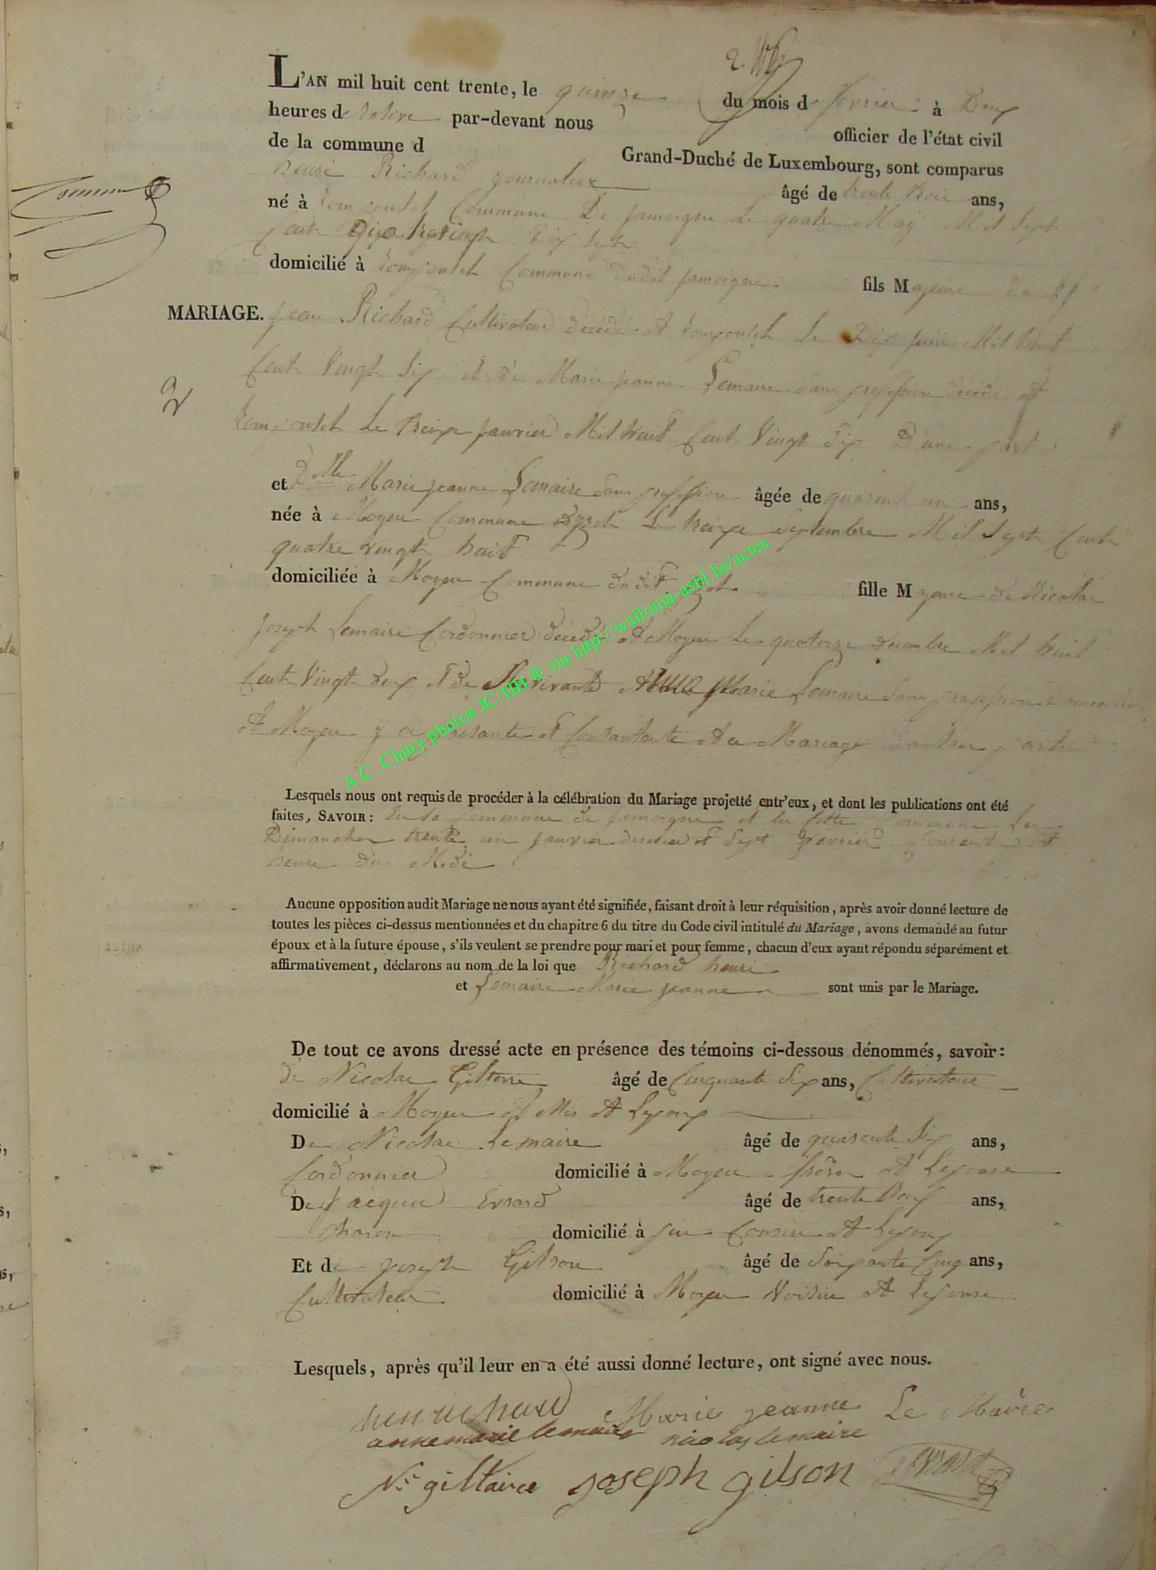 L'AN mil huit cent trente, le quinze du mois de fevrier à Deux
heures de par-devant nous officier de l'état civil
de la commune d Grand-Duché de Luxembourg, sont comparus
henri Richard journalier âgé de trente trois ans,
né à Commune De jamoigne Le quatre May Mil Sept
Cent Quatrevingt Dix Sept
domicilié à Commune dudit jamoigne fils Majeur de
MARIAGE. jean Richard Cultivateur décédé A Le Dix juin Mil huit
Cent Vingt Six et de Marie jeanne Lemaire Sans profession décédé A
2 Le treize janvier Mil huit Cent Vingt Six D'une part
et Dlle Marie jeanne Lemaire Sans profession âgée de quarente un ans,
née à Moyen Commune Le treize Septembre Mil Sept Cent
quatre vingt huit
domiciliée à Moyen Commune dudit fille Majeure de Nicolas
joseph Lemaire Cordonnier décédé A Moyen Le quatorze décembre Mil huit
Cent Vingt deux et de Marie Lemaire Sans profession
A Moyen y présente et Consentente A ce Mariage d'autre part
A.C. Chiny photos JC/HB ® via http://wallonia-asbl.be/actes
Lesquels nous ont requis de procéder à la célébration du Mariage projetté entr'eux, et dont les publications ont été
faites, SAVOIR : En la Commune de jamoigne et Commune Les
Dimanches trente un janvier dernier et Sept fevrier Courent A
heure du Midi
Aucune opposition audit Mariage ne nous ayant été signifiée, faisant droit à leur réquisition, après avoir donné lecture de
toutes les pièces ci-dessus mentionnées et du chapitre 6 du titre du Code civil intitulé du Mariage, avons demandé au futur
époux et à la future épouse, s'ils veulent se prendre pour mari et pour femme, chacun d'eux ayant répondu séparément et
affirmativement, déclarons au nom de la loi que Richard henri
et Lemaire Marie jeanne sont unis par le Mariage.
De tout ce avons dressé acte en présence des témoins ci-dessous dénommés, savoir:
De Nicolas âgé de Cinquante Six ans, Cultivateur
domicilié à Moyen
De Nicolas Lemaire âgé de quarente Six ans,
Cordonnier domicilié à Moyen frère A Lepouse
De jacques âgé de trente ans,
domicilié à Cousin A Lepoux
Et de joseph Gilson âgé de Soixante Cinq ans,
Cultivateur domicilié à Moyen Voisin A Lepouse
Lesquels, après qu'il leur en a été aussi donné lecture, ont signé avec nous.
Marie jeanne Le Maire
anne marie lemaire nicolas lemaire
Ns giltaire joseph gilson